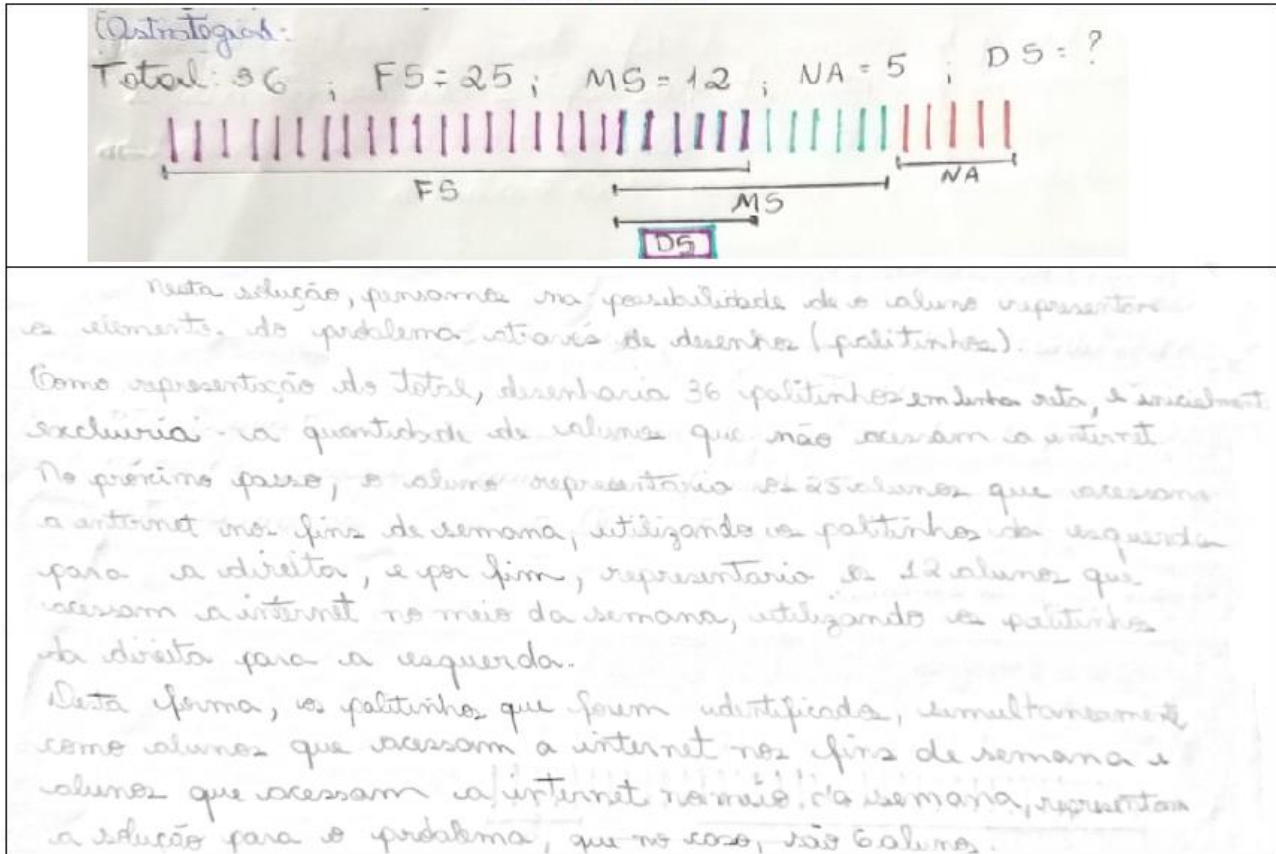 Estratégia 1:
Total: 36 ; FS = 25 ; MS = 12 ; NA = 5 ; DS = ?
FS
NA
MS
DS
Nesta solução, pensamos na possibilidade de o aluno representar
os elementos do problema através de desenhos (palitinhos).
Como representação do total, desenharia 36 palitinhos em linha reta, e inicialmente
excluiria a quantidade de alunos que não acessam a internet
No próximo passo, o aluno representaria os 25 alunos que acessam
a internet nos fins de semana, utilizando os palitinhos da esquerda
para a direita, e por fim, representaria os 12 alunos que
acessam a internet no meio da semana, utilizando os palitinhos
da direita para a esquerda.
Desta forma, os palitinhos que forem identificados, simultaneamente
como alunos que acessam a internet nos fins de semana e
alunos que acessam a internet no meio da semana, representam
a solução para o problema, que no caso, são 6 alunos.